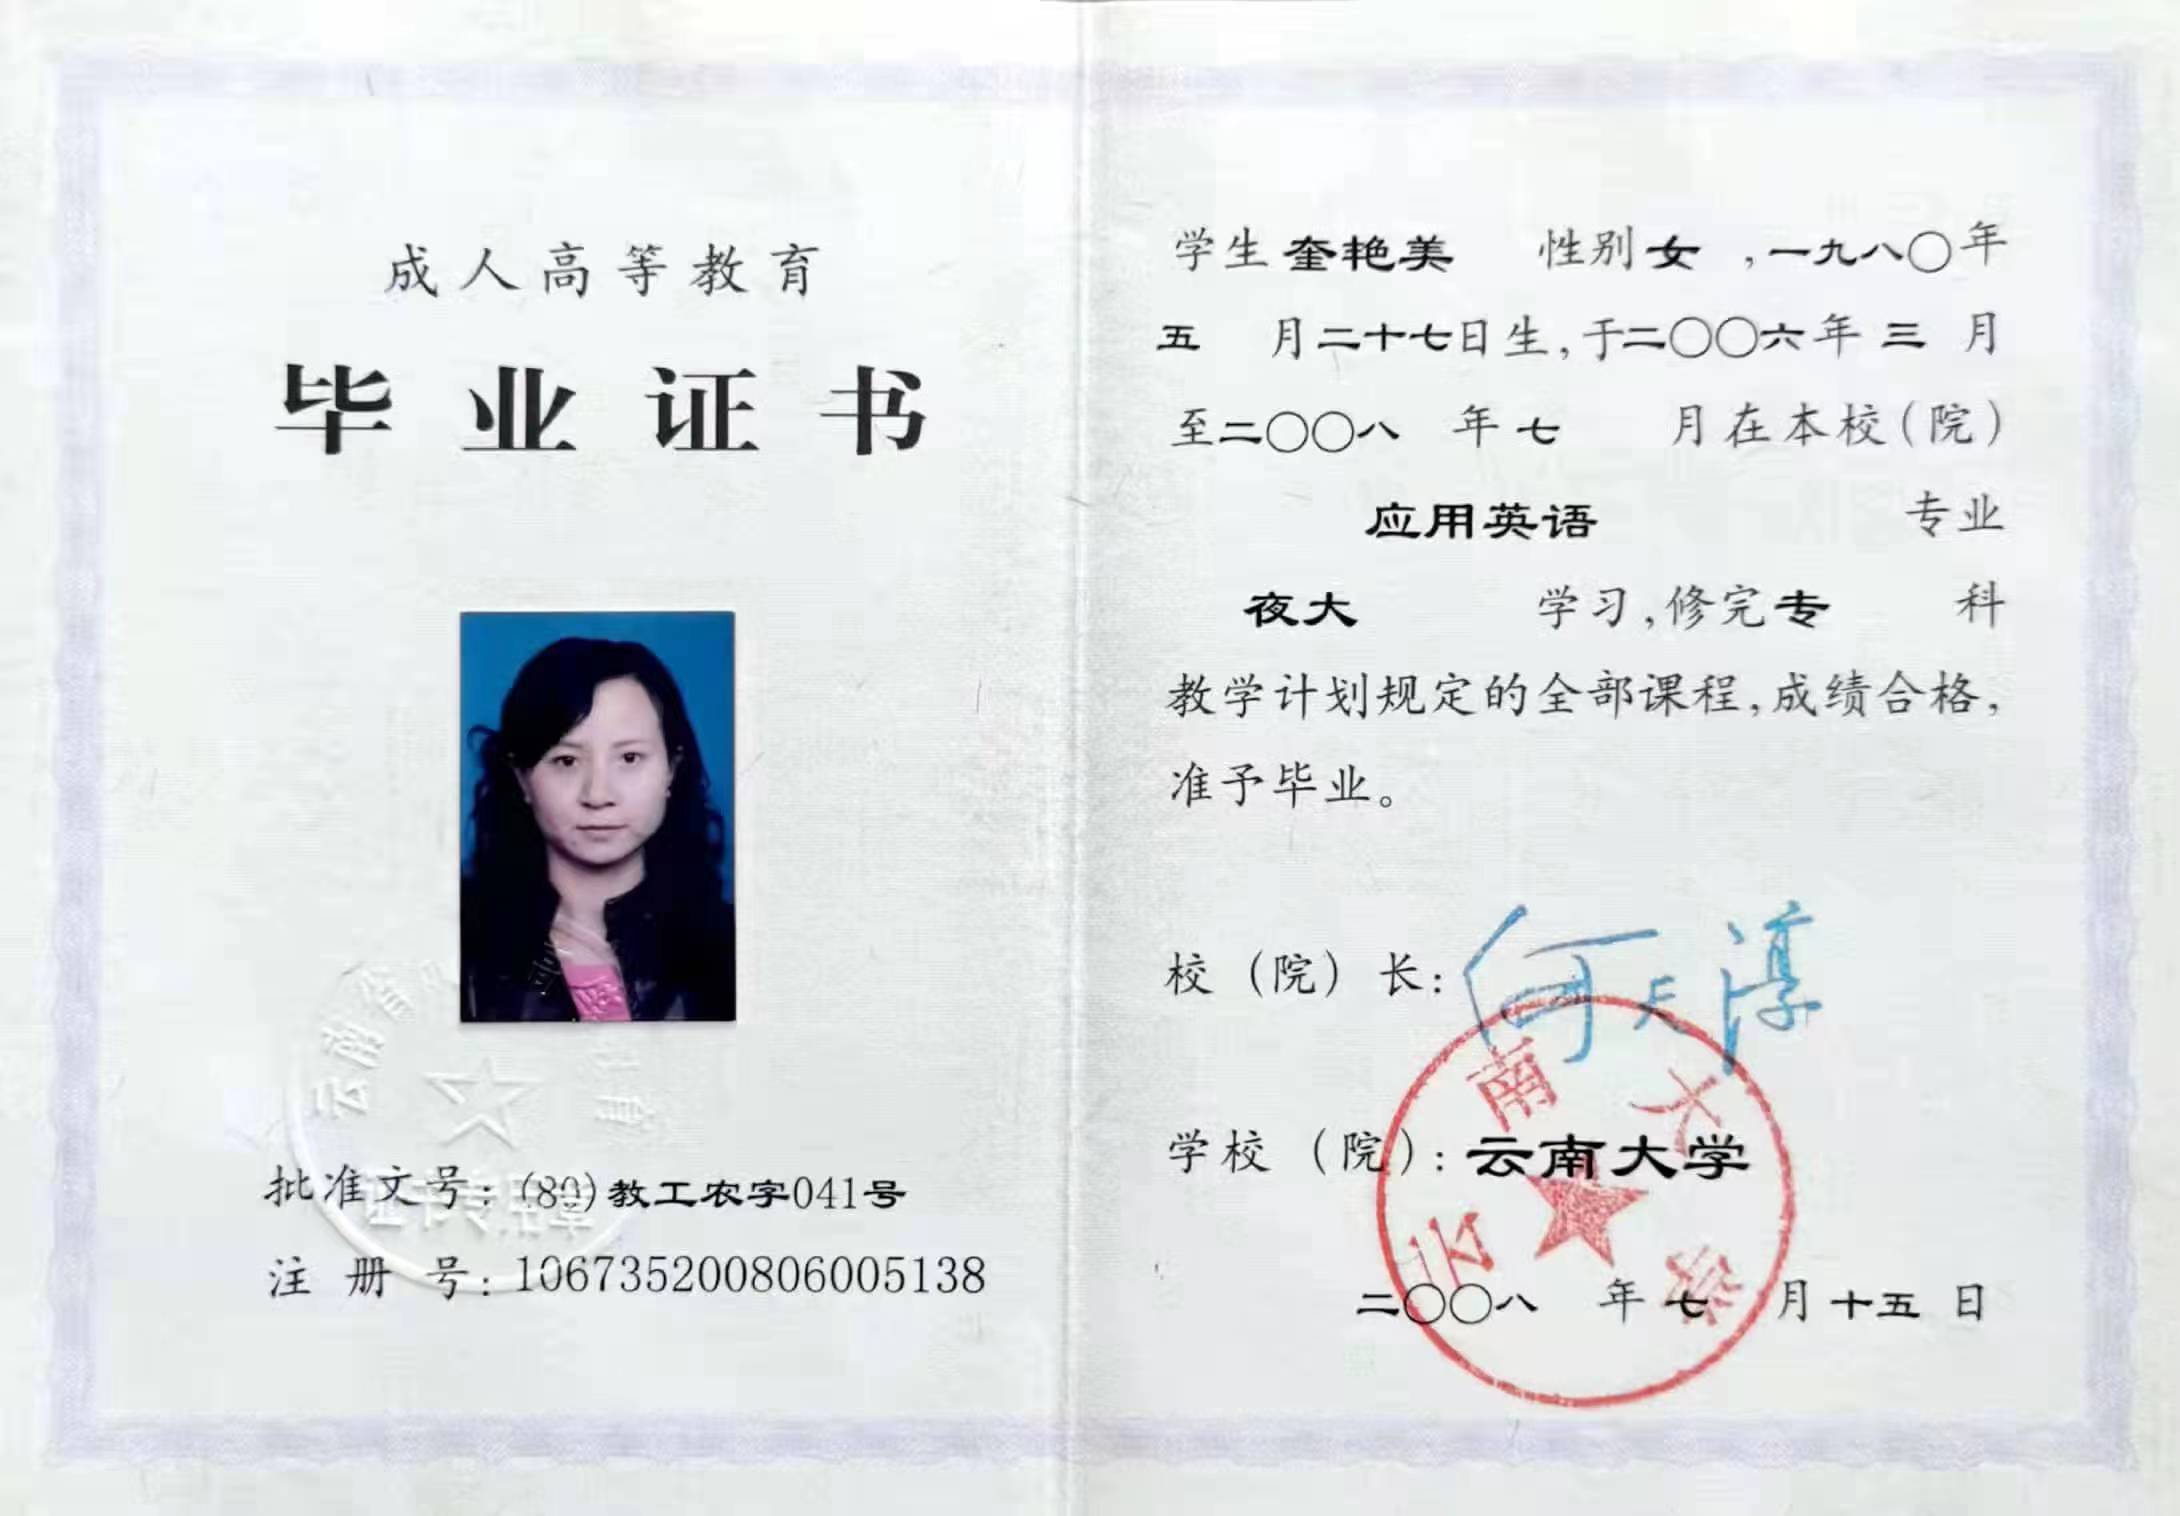 成人高等教育
毕业证书
云南省
育
证书专用章
批准文号：(80)教工农字041号
注册号：106735200806005138
学生奎艳美 性别女，一九八〇年
五 月二十七日生，于二〇〇六年三月
至二〇〇八 年七 月在本校（院）
应用英语 专业
夜大 学习，修完专 科
教学计划规定的全部课程，成绩合格，
准予毕业。
校（院）长：何天淳
学校（院）：云南大学
云南大学
二〇〇八 年七 月十五日